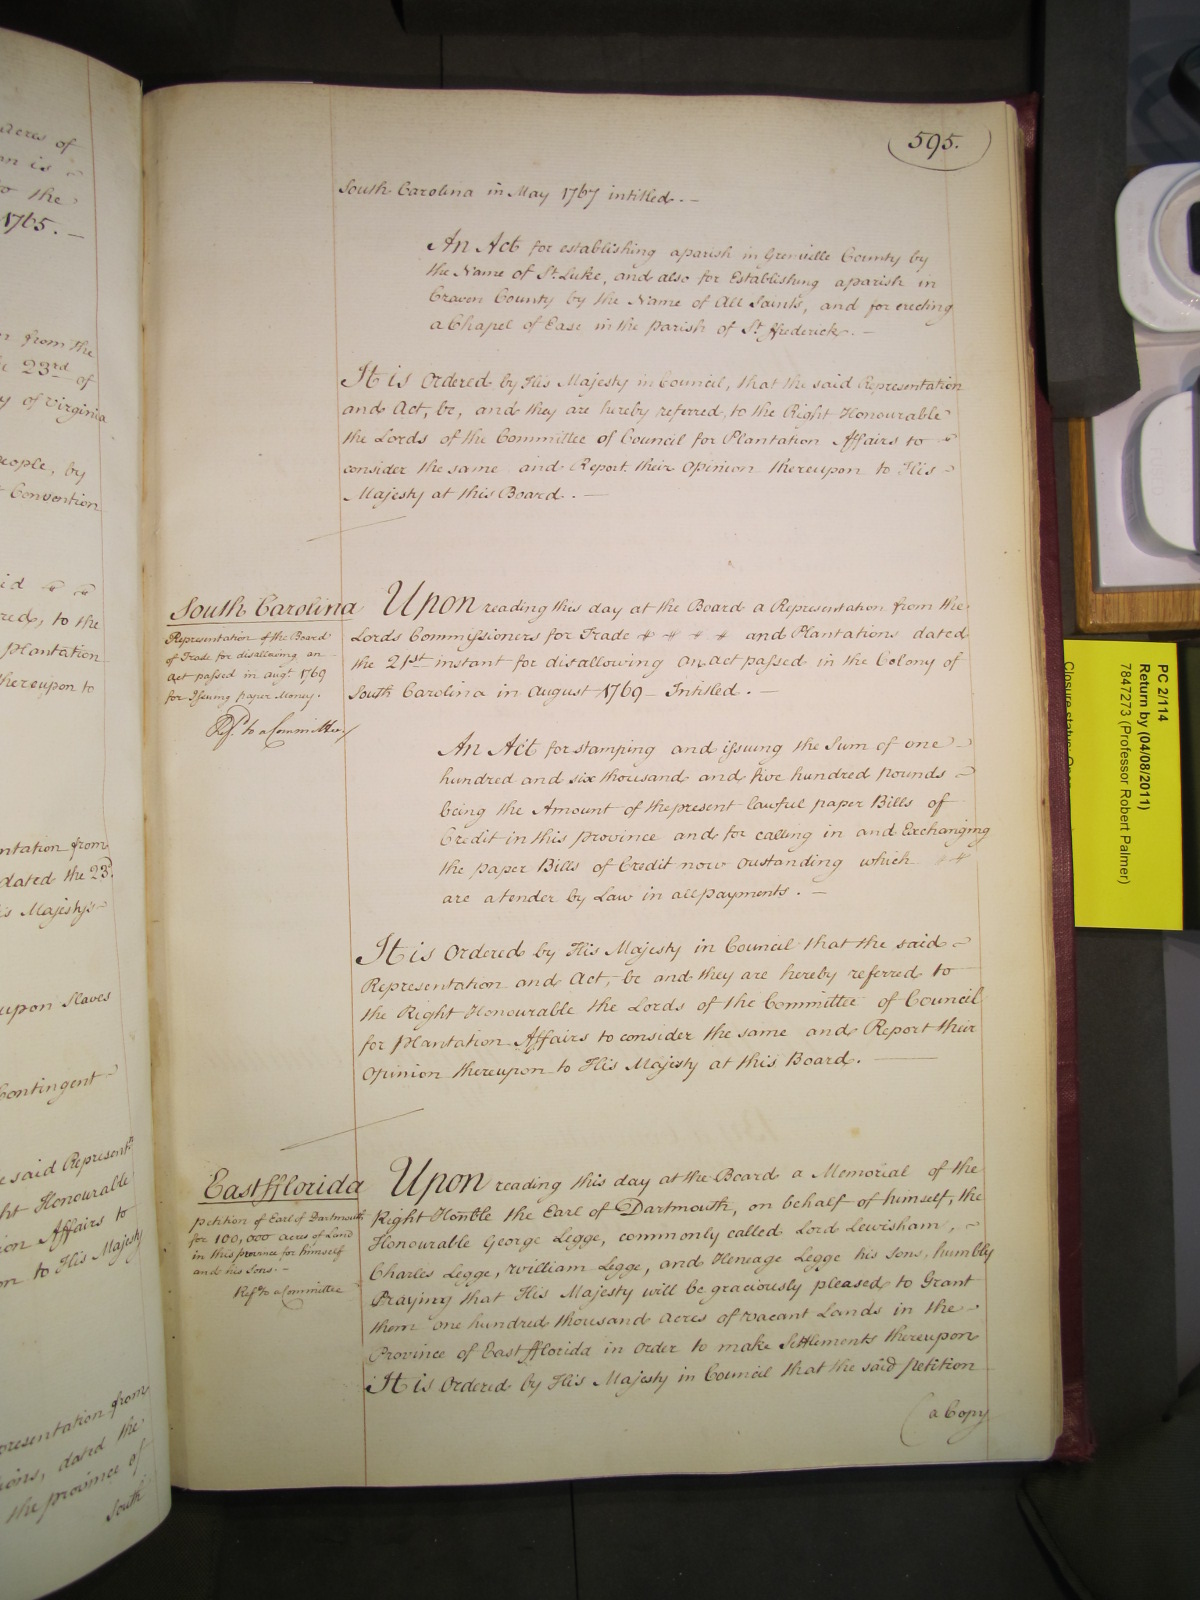 acres of
an is
to the
1765. —
from the
23rd of
of Virginia
people, by
Convention
id
red, to the
Plantation
thereupon to
ntation from
dated the 23d.
is Majesty's
upon Slaves
Contingent
e said Represent
ht Honourable
ion Affairs to
on to His Majesty
presentation from
ions, dated the
the province of
South
595.
South Carolina in May 1767 intitled. —
An Act for establishing a parish in Grenville County by
the Name of St. Luke, and also for Establishing a parish in
Craven County by the Name of All Saints, and for erecting
a Chapel of Ease in the parish of St. ffrederick. —
It is Ordered by His Majesty in Council, that the said Representation
and Act, be, and they are hereby referred, to the Right Honourable
the Lords of the Committee of Council for Plantation Affairs to
consider the same and Report their Opinion thereupon to His
Majesty at this Board. —
South Carolina
Representation of the Board
of Trade for disallowing an
Act passed in augt. 1769
for Issuing paper Money.
Refd. to a Committee
Upon reading this day at the Board a Representation from the
Lords Commissioners for Trade and Plantations dated
the 21st instant for disallowing an act passed in the Colony of
South Carolina in August 1769 – Intitled. —
An Act for stamping and issuing the Sum of one
hundred and six thousand and five hundred pounds
being the Amount of the present lawful paper Bills of
Credit in this province and for calling in and Exchanging
the paper Bills of Credit now oustanding which
are a tender by Law in all payments. —
It is Ordered by His Majesty in Council that the said
Representation and Act, be and they are hereby referred to
the Right Honourable the Lords of the Committee of Council
for Plantation Affairs to consider the same and Report their
Opinion thereupon to His Majesty at this Board. —
East fflorida
Petition of Earl of Dartmouth
for 100,000 acres of Land
in this province for himself
and his Sons. –
Refd. to a Committee
Upon reading this day at the Board a Memorial of the
Right Honble the Earl of Dartmouth, on behalf of himself, the
Honourable George Legge, commonly called Lord Lewisham,
Charles Legge, William Legge, and Heneage Legge his Sons, humbly
Praying that His Majesty will be graciously pleased to Grant
them one hundred thousand acres of vacant Lands in the
Province of East fflorida in order to make Settlements thereupon
It is Ordered by His Majesty in Council that the said petition
(a Copy
PC 2/114
Return by (04/08/2011)
7847273 (Professor Robert Palmer)
Closure status: Open